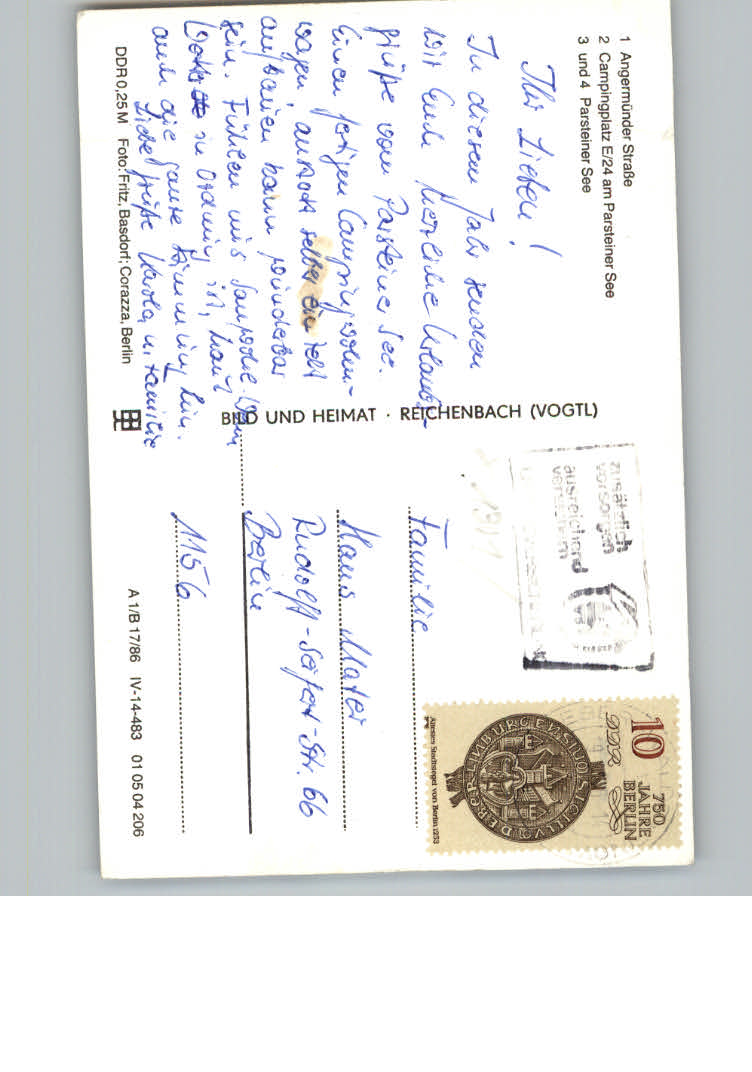 1 Angermünder Straße
2 Campingplatz E/24 am Parsteiner See
3 und 4 Parsteiner See
Ihr Lieben!
In diesem Jahr senden
wir Euch herzliche Urlaubs-
grüße vom Parsteiner See.
Einen fertigen Campingwohn-
wagen anstatt selber ein Zelt
aufbauen kann wunderbar
sein. Fühlen uns sauwohl. Wenn
in Ordnung ist, haut
auch die ganze Stimmung hin.
Liebe Grüße Karola u. Familie
DDR 0,25 M Foto: Fritz, Basdorf; Corazza, Berlin
BILD UND HEIMAT · REICHENBACH (VOGTL)
zusätzlich
vorsorgen
ausreichend
versichern
10
750
JAHRE
BERLIN
DDR
Ältestes Stadtsiegel von Berlin 1253
Familie
Hans
Rudolf-Seifert-Str. 66
Berlin
1156
A 1/B 17/86 IV-14-483 01 05 04 206